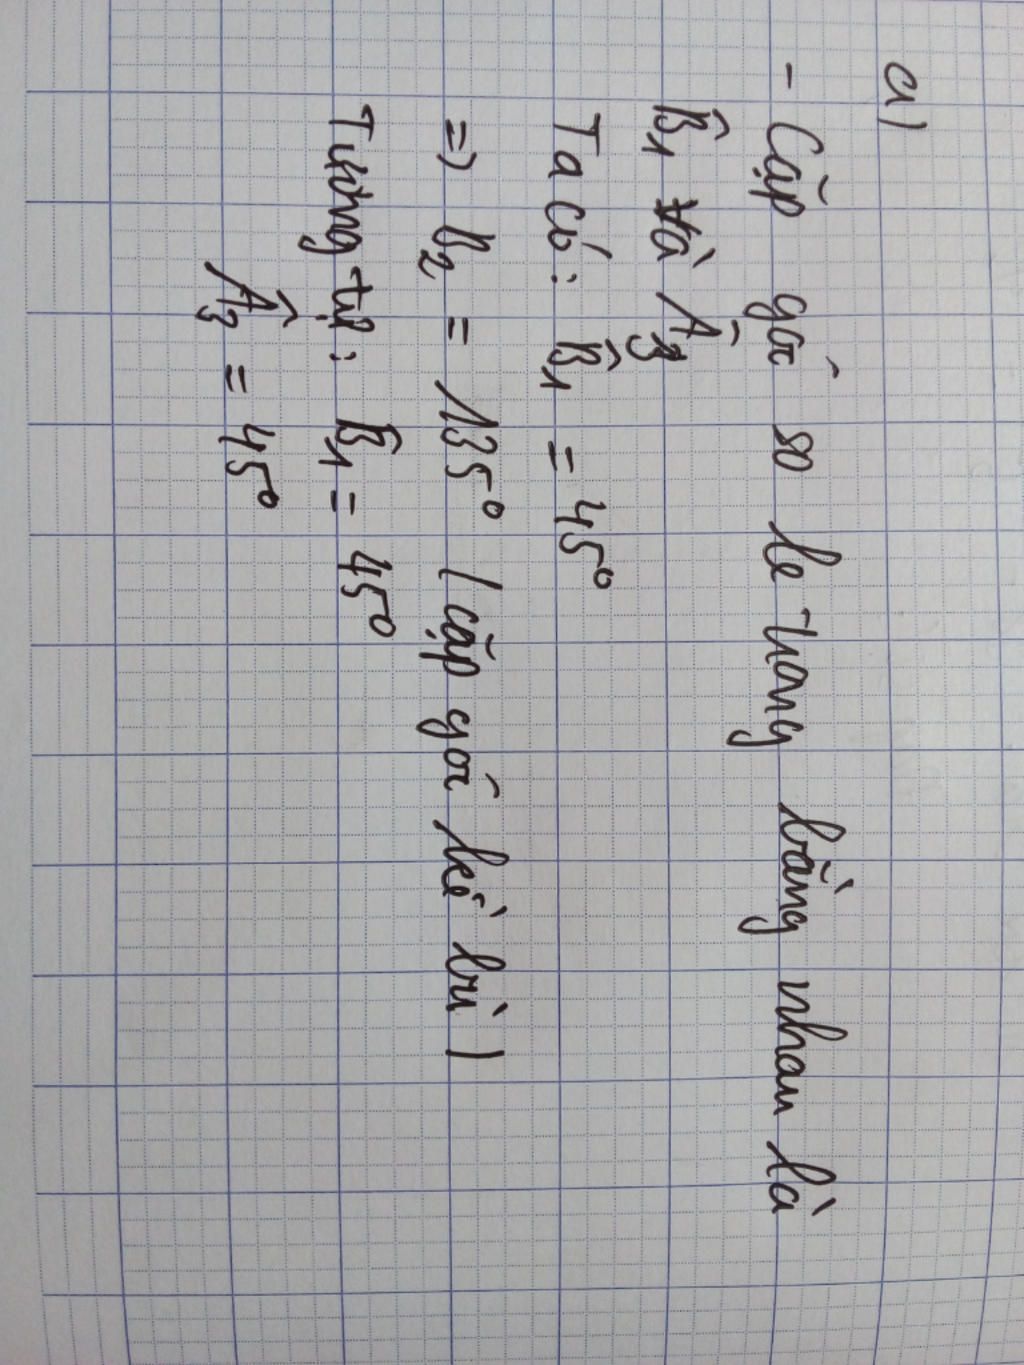 a)
- Cặp góc so le trong bằng nhau là
B̂₁ và Â₃
Ta có: B̂₁ = 45°
=> B₂ = 135° (cặp góc kề bù)
Tương tự: B̂₁ = 45°
Â₃ = 45°